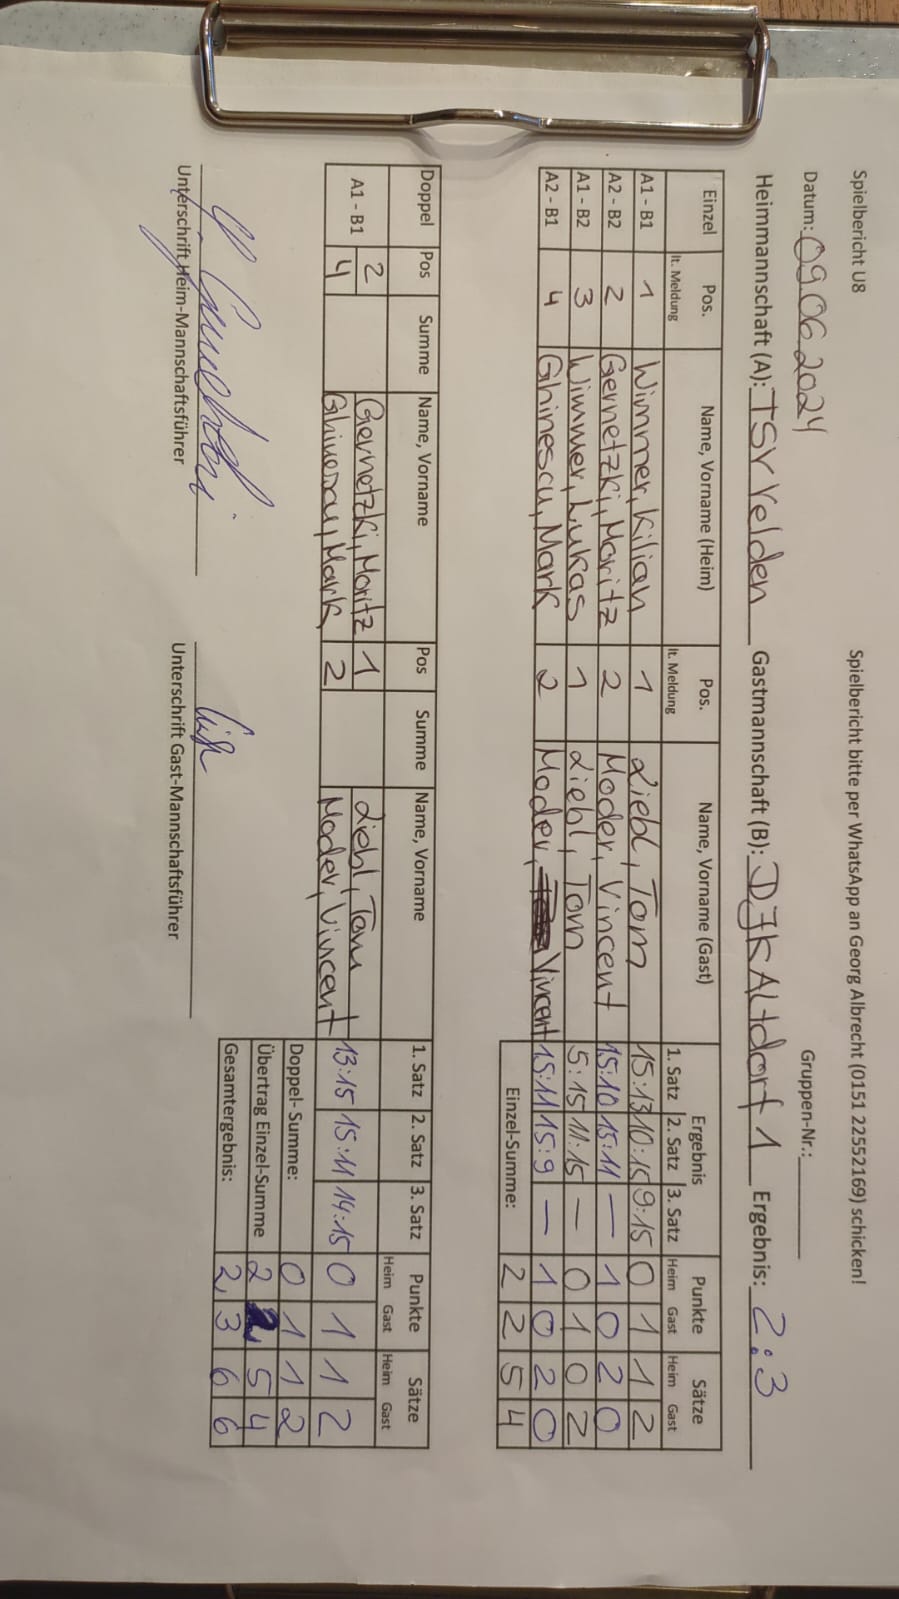 Spielbericht U8 Spielbericht bitte per WhatsApp an Georg Albrecht (0151 22552169) schicken!
Datum: 09.06.2024 Gruppen-Nr.:
Heimmannschaft (A): TSV Velden Gastmannschaft (B): DJK Altdorf 1 Ergebnis: 2:3
Einzel Pos. Name, Vorname (Heim) Pos. Name, Vorname (Gast) Ergebnis Punkte Sätze
lt. Meldung lt. Meldung 1. Satz 2. Satz 3. Satz Heim Gast Heim Gast
A1 - B1 1 Wimmer, Kilian 1 Liebl, Tom 15:13 10:15 9:15 0 1 1 2
A2 - B2 2 Gernetzki, Moritz 2 Moder, Vincent 15:10 15:11 — 1 0 2 0
A1 - B2 3 Wimmer, Lukas 1 Liebl, Tom 5:15 11:15 — 0 1 0 2
A2 - B1 4 Ghinescu, Mark 2 Moder, Vincent 15:11 15:9 — 1 0 2 0
Einzel-Summe: 2 2 5 4
Doppel Pos Summe Name, Vorname Pos Summe Name, Vorname 1. Satz 2. Satz 3. Satz Punkte Sätze
Heim Gast Heim Gast
A1 - B1 2 Gernetzki, Moritz 1 Liebl, Tom 13:15 15:11 14:15 0 1 1 2
4 Ghinescu, Mark 2 Moder, Vincent
Doppel- Summe: 0 1 1 2
Übertrag Einzel-Summe 2 2 5 4
Gesamtergebnis: 2 3 6 6
Unterschrift Heim-Mannschaftsführer Unterschrift Gast-Mannschaftsführer